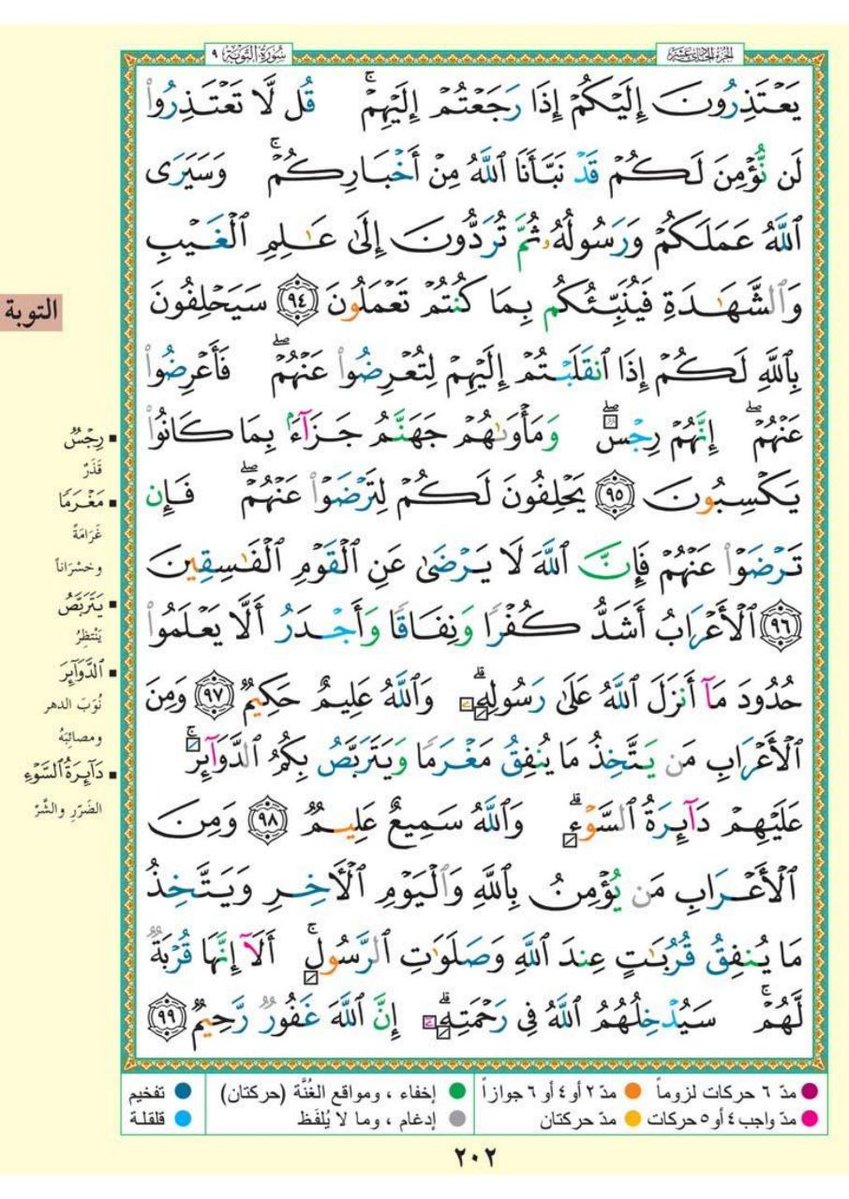 سُورَةُ التَّوْبَةِ ٩
الجُزْءُ الحَادِي عَشَر
يَعْتَذِرُونَ إِلَيْكُمْ إِذَا رَجَعْتُمْ إِلَيْهِمْ ۚ قُل لَّا تَعْتَذِرُوا۟
لَن نُّؤْمِنَ لَكُمْ قَدْ نَبَّأَنَا ٱللَّهُ مِنْ أَخْبَارِكُمْ ۚ وَسَيَرَى
ٱللَّهُ عَمَلَكُمْ وَرَسُولُهُۥ ثُمَّ تُرَدُّونَ إِلَىٰ عَـٰلِمِ ٱلْغَيْبِ
وَٱلشَّهَـٰدَةِ فَيُنَبِّئُكُم بِمَا كُنتُمْ تَعْمَلُونَ ٩٤ سَيَحْلِفُونَ
بِٱللَّهِ لَكُمْ إِذَا ٱنقَلَبْتُمْ إِلَيْهِمْ لِتُعْرِضُوا۟ عَنْهُمْ ۖ فَأَعْرِضُوا۟
عَنْهُمْ ۖ إِنَّهُمْ رِجْسٌ ۖ وَمَأْوَىٰهُمْ جَهَنَّمُ جَزَآءًۢ بِمَا كَانُوا۟
يَكْسِبُونَ ٩٥ يَحْلِفُونَ لَكُمْ لِتَرْضَوْا۟ عَنْهُمْ ۖ فَإِن
تَرْضَوْا۟ عَنْهُمْ فَإِنَّ ٱللَّهَ لَا يَرْضَىٰ عَنِ ٱلْقَوْمِ ٱلْفَـٰسِقِينَ
٩٦ ٱلْأَعْرَابُ أَشَدُّ كُفْرًا وَنِفَاقًا وَأَجْدَرُ أَلَّا يَعْلَمُوا۟
حُدُودَ مَآ أَنزَلَ ٱللَّهُ عَلَىٰ رَسُولِهِۦ ۗ وَٱللَّهُ عَلِيمٌ حَكِيمٌ ٩٧ وَمِنَ
ٱلْأَعْرَابِ مَن يَتَّخِذُ مَا يُنفِقُ مَغْرَمًا وَيَتَرَبَّصُ بِكُمُ ٱلدَّوَآئِرَ ۚ
عَلَيْهِمْ دَآئِرَةُ ٱلسَّوْءِ ۗ وَٱللَّهُ سَمِيعٌ عَلِيمٌ ٩٨ وَمِنَ
ٱلْأَعْرَابِ مَن يُؤْمِنُ بِٱللَّهِ وَٱلْيَوْمِ ٱلْـَٔاخِرِ وَيَتَّخِذُ
مَا يُنفِقُ قُرُبَـٰتٍ عِندَ ٱللَّهِ وَصَلَوَٰتِ ٱلرَّسُولِ ۚ أَلَآ إِنَّهَا قُرْبَةٌ
لَّهُمْ ۚ سَيُدْخِلُهُمُ ٱللَّهُ فِى رَحْمَتِهِۦٓ ۗ إِنَّ ٱللَّهَ غَفُورٌ رَّحِيمٌ ٩٩
التوبة
رِجْسٌ
قَذَرٌ
مَغْرَمًا
غَرَامَةً
وخسْرَاناً
يَتَرَبَّصُ
يَنْتظِرُ
ٱلدَّوَآئِرَ
نُوَبَ الدهر
ومصائبَهُ
دَآئِرَةُ ٱلسَّوْءِ
الضَرَرِ والشَّرّ
مدّ ٦ حركات لزوماً
مدّ ٢ أو ٤ أو ٦ جوازاً
إخفاء ، ومواقع الغُنَّة (حركتان)
تفخيم
مدّ واجب ٤ أو ٥ حركات
مدّ حركتان
إدغام ، وما لا يُلفَظ
قلقلة
٢٠٢